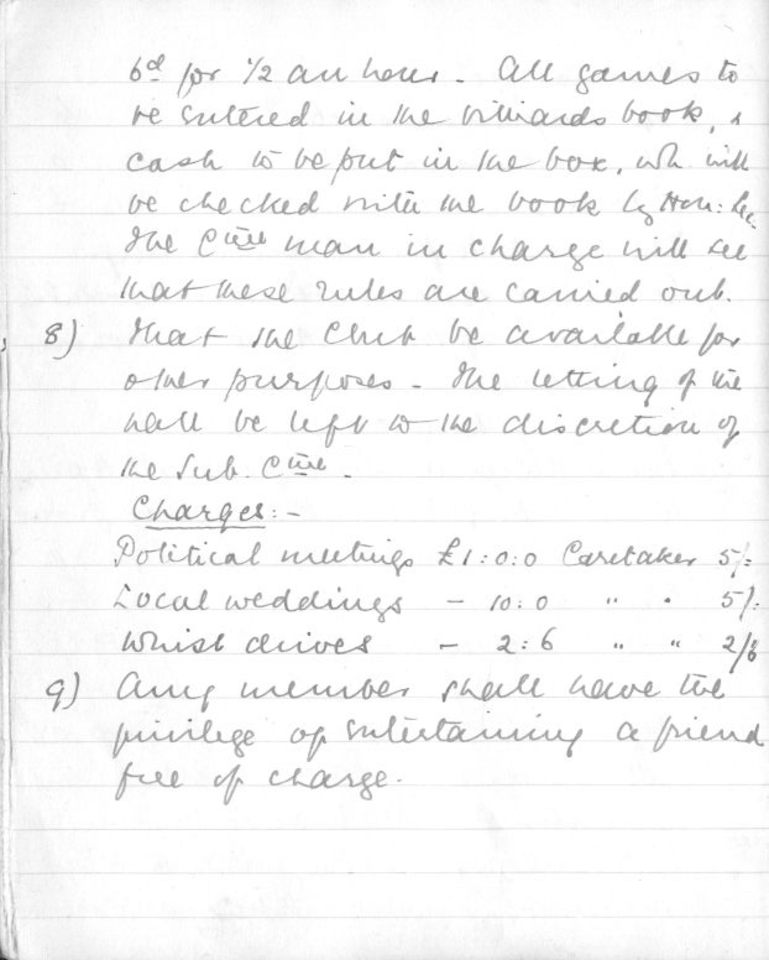 6d for 1/2 an hour - All games to
be entered in the billiards book, &
cash to be put in the box, wh will
be checked with the book by Hon: Sec.
The Cttee man in charge will see
that these rules are carried out.
8) That the Club be available for
other purposes - The letting of the
hall be left to the discretion of
the Sub. Cttee -
Charges:-
Political meetings £1:0:0 Caretaker 5/-
Local weddings - 10:0 " " 5/-
Whist drives - 2:6 " " 2/6
9) Any member shall have the
privilege of entertaining a friend
free of charge.